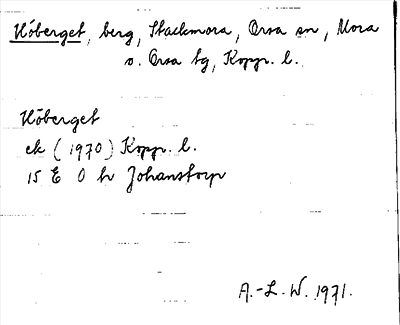 Höberget, berg, Stackmora, Orsa sn, Mora
o. Orsa tg, Kopp. l.
Höberget
ek (1970) Kopp. l.
15 E 0 h Johanstorp
A.-L. W. 1971.